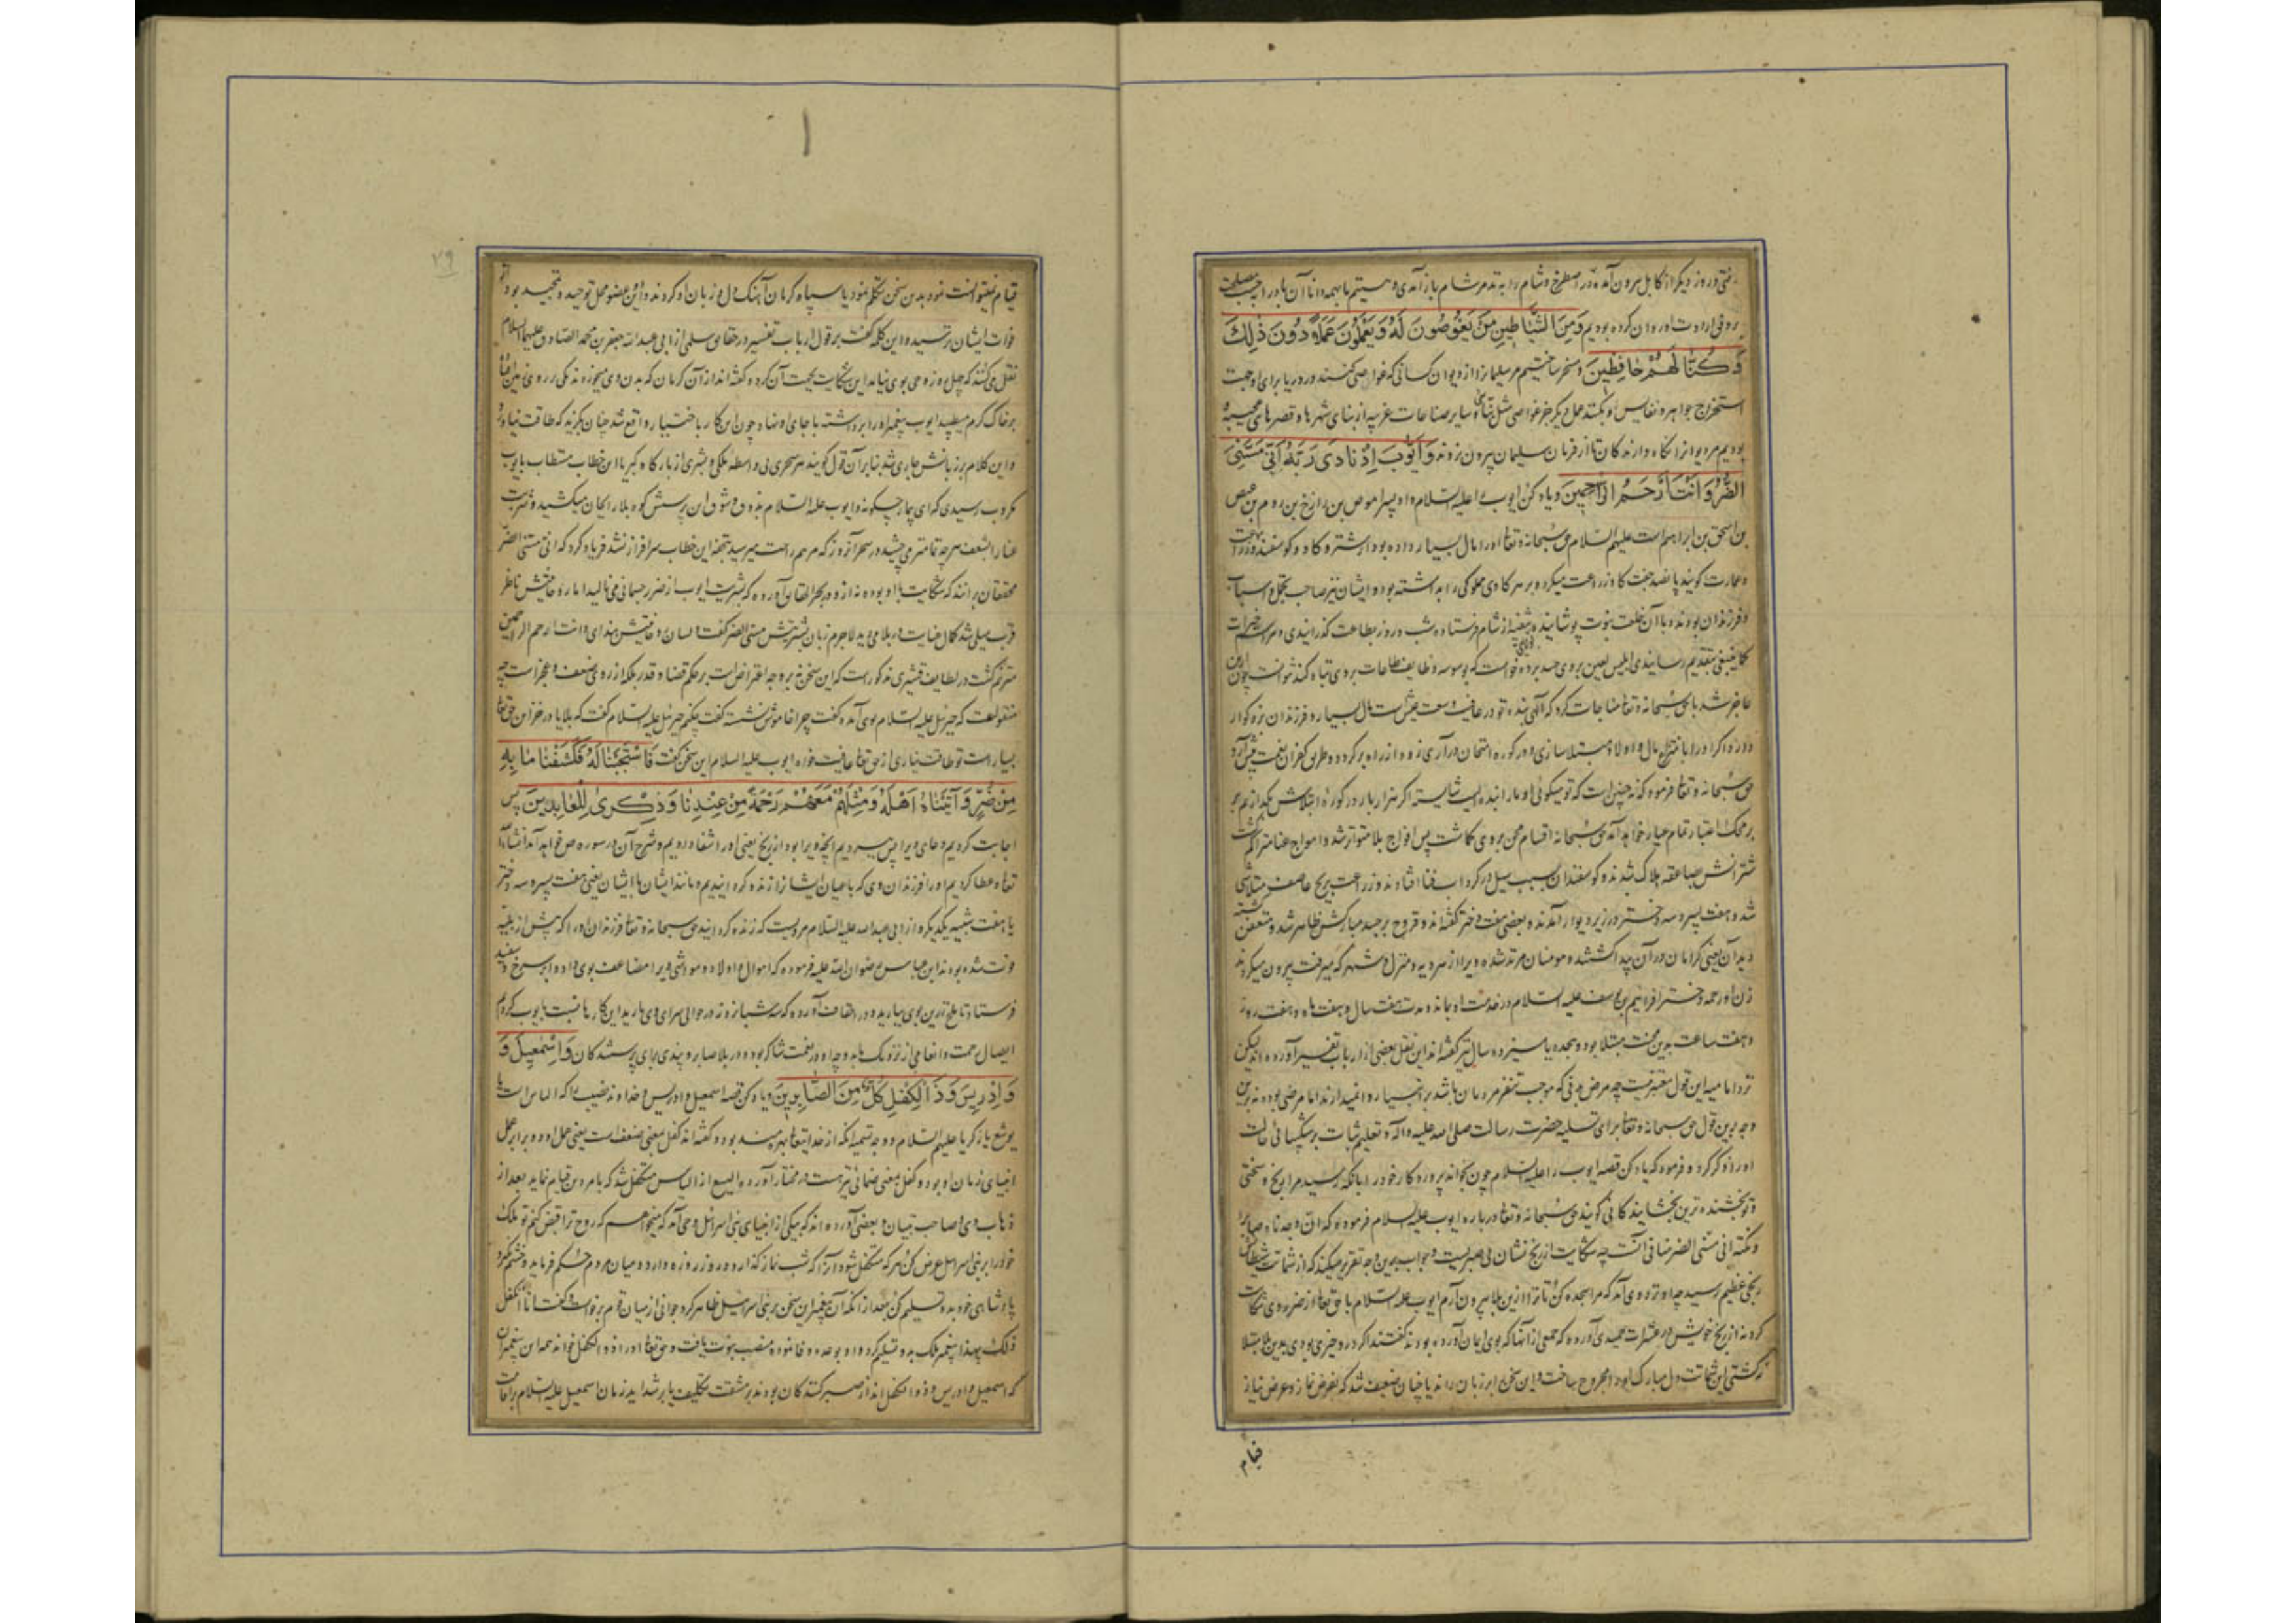 روز دیگر از کابل بیرون آمده در اصطخر و شام را به تدمر شام باز آمدی و هستیم ما بهمه دانا آن باد را حسب مصلحت
کرده بودیم وَمِنَ الشَّيَاطِينِ مَنْ يَغُوصُونَ لَهُ وَيَعْمَلُونَ عَمَلًا دُونَ ذٰلِكَ
وَكُنَّا لَهُمْ حَافِظِينَ و مسخر ساختیم مر سلیمان را از دیوان کسانی که غواصی کنند در دریا برای او جهت
استخراج جواهر و نفایس و بکنند عمل دیگر جز غواصی مثل بنائی و سایر صناعات غریبه از بنای شهرها و قصرهای عجیبه
بودیم مر دیوانرا نگاه دارندکان تا از فرمان سلیمان بیرون نروند وَأَيُّوبَ إِذْ نَادَى رَبَّهُ أَنِّي مَسَّنِيَ
الضُّرُّ وَأَنْتَ أَرْحَمُ الرَّاحِمِينَ و یاد کن ایوب را علیه السلام و او پسر اموص بن رازخ بن روم بن عیص
بن اسحق بن ابراهیم است علیهم السلام حق سبحانه و تعالی او را مال بسیار داده بود از شتر و کاو و کوسفند و زراعت
و عمارت کویند پانصد جفت کاو زراعت میکرد و بر هر کاوی مملوکی را بداشته بود و ایشان نیز صاحب تجمل و اسباب
و فرزندان بودند با آن خلعت نبوت پوشانیده شام فرستاده شب و روز بطاعت گذرانیدی و مراسم خیرات
کما ینبغی بتقدیم رسانیدی ابلیس لعین بر وی حسد برده خواست که بوسوسه وظایف طاعات بر وی تباه کند نتوانست چون
عاجز شد با حق سبحانه و تعالی مناجات کرد که الهی بنده تو در عافیت و سعت عیش است مال بسیار و فرزندان بزرکوار
دارد اکر او را بانتزاع مال و اولاد مبتلا سازی و در کوره امتحان درآری زود از راه بر کردد و طریق کفران نعمت پیش آرد
حق سبحانه و تعالی فرمود که نه چنین است که تو میکوئی او مارا بنده ایست شایسته اکر هزار بار در کوره ابتلاش بکدازیم بر
بر محک اعتبار تمام عیار خواهد آمد حق سبحانه اقسام محن بر وی کماشت پس افواج بلا متواتر شد و امواج عنا متراکم کشت
شترانش بصاعقه هلاک شدند و کوسفندان بسبب سیل در کرداب فنا افتادند و زراعت بریح عاصف متلاشی
شد و هفت پسر و سه دختر در زیر دیوار آمدند و بعضی هفت دختر گفته اند و قروح بر جسد مبارکش ظاهر شد و متعفن کشته
دیدان یعنی کرمان در آن پیدا کشتند و مومنان مرتد شده ویرا از هر دیه و منزل و شهر که میرفت بیرون میکردند
زن او رحمه دختر افرائیم بن یوسف علیه السلام در خدمت او بماند و مدت هفت سال و هفت ماه و هفت روز
و هفت ساعت بدین محنت مبتلا بود و هجده یا سیزده سال نیز گفته اند این نقل بعضی از ارباب تفسیر آورده اند لیکن
نزد امامیه این قول معتبر نیست چه مرض بدنی که موجب تنفر مردمان باشد بر انبیا روا نمیدارند اما مرضی بوده نه برین
وجه برین قول حق سبحانه و تعالی برای تسلیه حضرت رسالت صلی الله علیه و آله و تعلیم ثبات بر شکیبائی حالت
او را ذکر کرد و فرمود که یاد کن قصه ایوب را علیه السلام چون بخواند پروردکار خود را بانکه رسید مرا رنج و سختی
و تو بخشنده ترین بخشایندکانی کویند حق سبحانه و تعالی درباره ایوب علیه السلام فرموده که انا وجدناه صابرا
و نکته انی مسنی الضر منافی آنست چه شکایت از رنج نشان بی صبریست و جواب برین وجه تقریر میکنند که از شماتت شیطان
رنجی عظیم رسید چه او نزد وی آمد که مرا سجده کن تا ترا ازین بلا بیرون آرم ایوب علیه السلام با حق تعالی از ضرر وی شکایت
کرد نه از رنج خویش و در عشرات حمیدی آورده که جمعی از آنها که بوی ایمان آورده بودند گفتند اکر در و خیری بودی بدین بلا مبتلا
نکشتی این شماتت دل مبارک او را مجروح ساخت و این سخن را بر زبان راند یا چنان ضعیف شد که بفرض نماز و عرض نیاز
قیام
۲۹
قیام نمیتوانست نمود بدین سخن تکلم نمود یا سپاه کرمان آهنک دل و زبان او کردند و این دو عضو محل توحید و تمجید بود
فوات ایشان ترسیده این کلمه گفت بر قول ارباب تفسیر در حقایق سلمی از ابی عبدالله جعفر بن محمد الصادق علیهما السلام
نقل می کنند که چهل روز وحی بوی نیامد این شکایت بجهت آن کرد و گفته اند از آن کرمان که بدن وی میخوردند یکی بر روی زمین افتاد
بر خاک کرم میطپید ایوب پیغمبر او را برداشته باجای او نهاد و چون این کار باختیار واقع شد چنان بکزید که طاقت نیاورد
و این کلام بر زبانش جاری شد بنابر آن قول کویند هر سحری بی واسطه ملکی و بشری از بارگاه کبریا این خطاب مستطاب بایوب
مکروب رسیدی که ای بیمار چکونه و ایوب علیه السلام بذوق و شوق این پرسش کوه بلا را بجان میکشید و شربت
عنا را بشعف هر چه تمامتر می چشید در سحر آن روز که مرهم راحت میرسید بتحفه این خطاب سرافراز نشد فریاد کرد که انی مسنی الضر
محققان برانند که شکایت با او بوده نه از و در بحر الحقایق آورده که بشریت ایوب از ضرر جسمانی می نالید اما روحانیتش ناظر
قرب مبلی شد کمال عنایت در بلا می دید لاجرم زبان بشریتش مسنی الضر گفت و لسان روحانیتش بندای و انت ارحم الراحمین
مترنم کشت در لطایف قشیری مذکور است که این سخن نه بر وجه اعتراض است بر حکم قضا و قدر بلکه از روی ضعف و عجز است چه
منقولست که جبرئیل علیه السلام بوی آمده گفت چرا خاموش نشستی گفت چکنم جبرئیل علیه السلام گفت که بلایا در خزاین حق تعالی
بسیار است تو طاقت نیاری از حق تعالی عافیت خواه ایوب علیه السلام این سخن گفت فَاسْتَجَبْنَا لَهُ فَكَشَفْنَا مَا بِهِ
مِنْ ضُرٍّ وَآتَيْنَاهُ أَهْلَهُ وَمِثْلَهُمْ مَعَهُمْ رَحْمَةً مِنْ عِنْدِنَا وَذِكْرَى لِلْعَابِدِينَ پس
اجابت کردیم دعای ویرا پس ببردیم آنچه ویرا بود از رنج یعنی او را شفا دادیم و شرح آن در سوره ص خواهد آمد انشاءالله
تعالی و عطا کردیم او را فرزندان وی که باعیان ایشانرا زنده کردانیدیم و مانند ایشان با ایشان یعنی هفت پسر و سه دختر
یا هفت شبیه یکدیکر و از ابی عبدالله علیه السلام مرویست که زنده کردانید حق سبحانه و تعالی فرزندان او را که پیش از بلیه
فوت شده بودند ابن عباس رضوان الله علیه فرموده که اموال و اولاد و مواشی ویرا مضاعف بوی داد و ابر سرخ و سفید
فرستاد تا ملخ زرین بوی بارید و در کشاف آورده که سه شبانروز در حوالی سرای وی بارید این کارها نسبت بایوب کردیم
ایصال رحمت و انعامی از نزدیک ما بدو چه او در نعمت شاکر بود و در بلا صابر و پندی برای پرستندکان وَإِسْمٰعِيلَ وَ
وَإِدْرِيسَ وَذَا الْكِفْلِ كُلٌّ مِنَ الصَّابِرِينَ و یاد کن قصه اسمعیل و ادریس و خداوند نصیب را که الیاس است یا
یوشع یا زکریا علیهم السلام و وجه تسمیه آنکه از خدایتعالی بهره مند بود و گفته اند کفل بمعنی ضعف است یعنی عمل او دو برابر عمل
انبیای زمان او بود و کفل بمعنی ضمانی نیز هست در مختار آورده الیسع از الیاس متکفل شد که بامر دین قیام نماید بعد از
ذهاب وی و صاحب تبیان و بعضی آورده اند که بیکی از انبیای بنی اسرائیل وحی آمد که میخواهم که روح ترا قبض کنم تو ملک
خود را بر بنی اسرائیل عرض کن هر که متکفل شود آنرا که شب نماز گذارد و روز روزه دارد و میان مردم حکم فرماید و خشم نکیرد
پادشاهی خود بدو تسلیم کن بعد از آنکه آن پیغمبر این سخن بر بنی اسرائیل ظاهر کرد جوانی از میان قوم برخواست و گفت انا اتکفل
ذلک بهذا پیغمبر ملک بدو تسلیم کرد و او بوعده وفا نموده منصب نبوت یافت و حق تعالی او را ذوالکفل خواند همه این پیغمبران
که اسمعیل و ادریس و ذوالکفل اند از صبر کنندکان بودند بر مشقت تکلیف یا بر شداید زمان اسمعیل علیه السلام باقامت